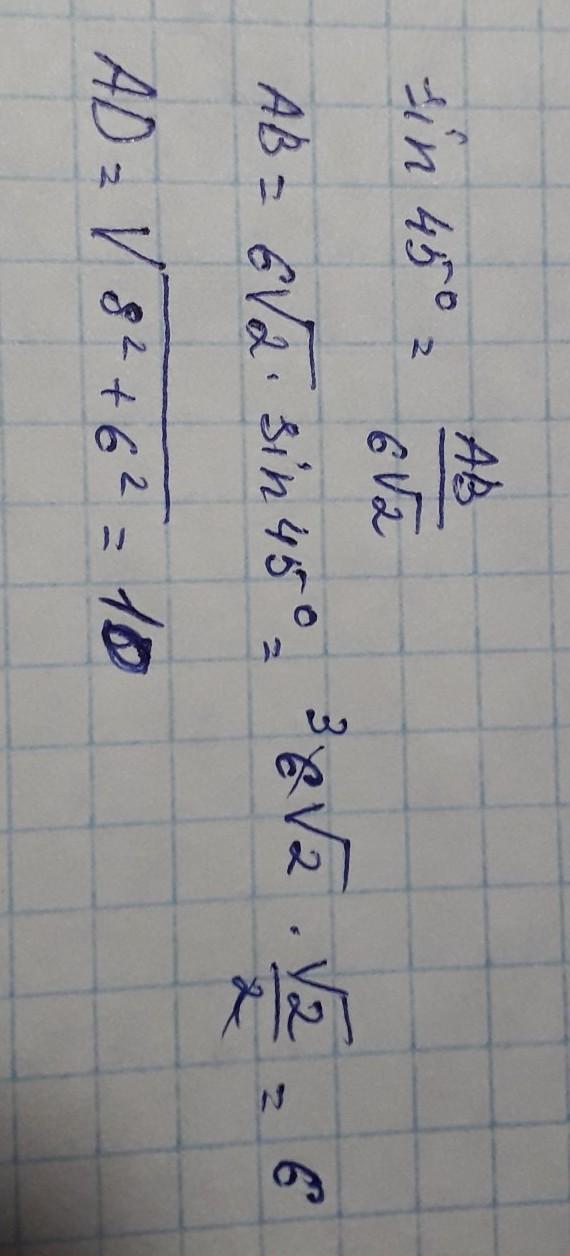 sin 45° = AB / 6√2
AB = 6√2 · sin 45° = ³6√2 · √2 / 2 = 6
AD = √8² + 6² = 10